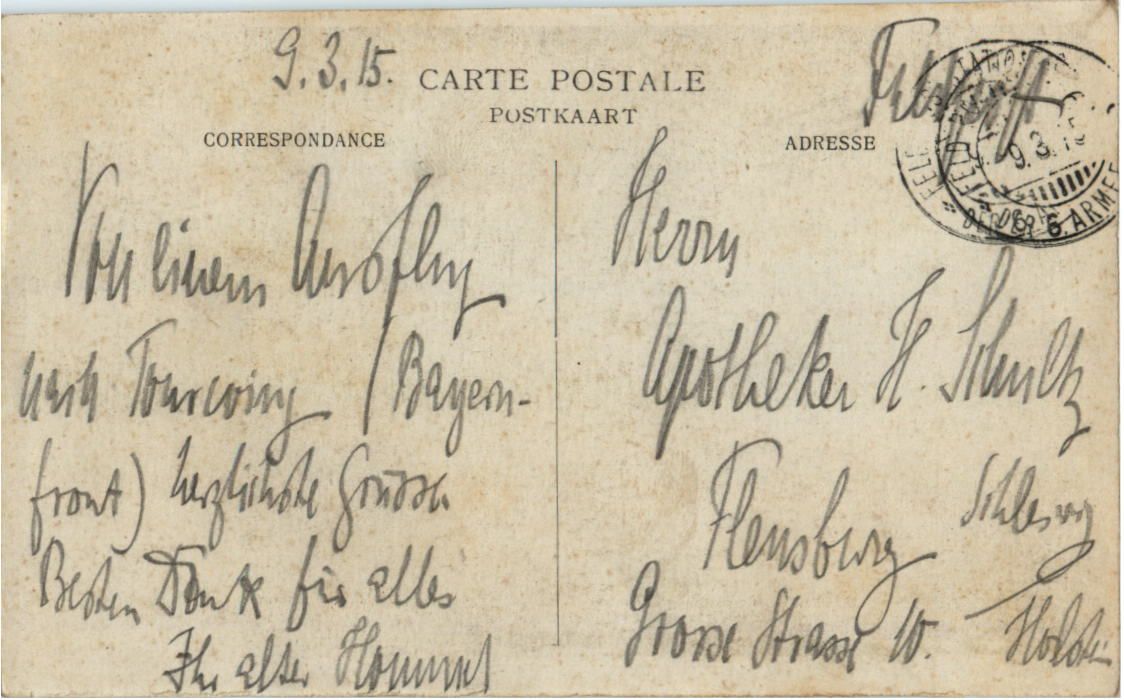 9.3.15.
CARTE POSTALE
POSTKAART
CORRESPONDANCE
ADRESSE
Feldpost
9.3.15
DER 6. ARMEE
Von einem Ausflug
nach Tourcoing (Bayern-
front) herzlichste Grüsse
Besten Dank für alles
Ihr alter Hommel
Herrn
Apotheker H. Schultz
Flensburg
Schleswig
Holstein
Grosse Strasse 10.